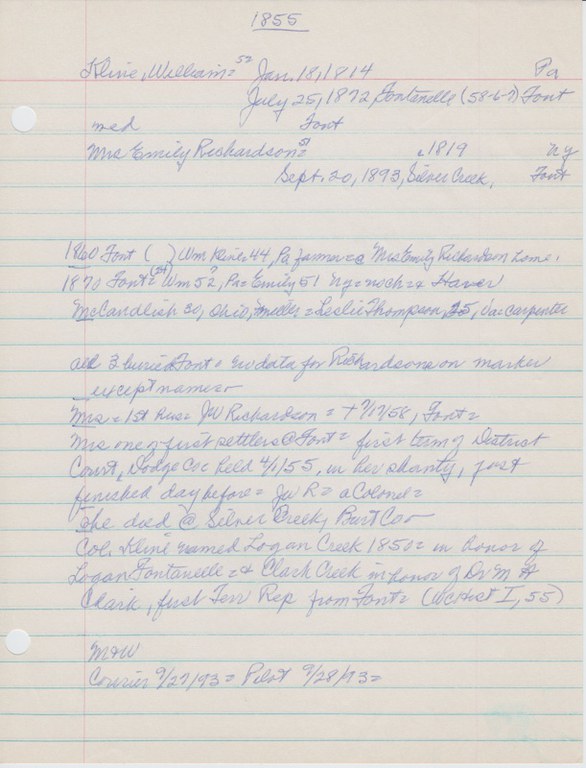 1855
Kline, William = 52 Jan. 18, 1814 Pa
July 25, 1872 Fontanelle (58-6-7) Font
med Font
Mrs Emily Richardson = 51 c 1819 NY
Sept. 20, 1893, Silver Creek, Font
1860 Font ( ) Wm Kline 44, Pa farmer = @ Mrs Emily Richardson home.
1870 Font = Wm 52, Pa = Emily 51 NY = no ch = &
McCandlish 30, Ohio, miller = Leslie Thompson, 25, Va = carpenter
all 3 buried Font = no data for Richardsons on marker
except names =
Mrs = 1st hus = JW Richardson = + 58, Font =
Mrs one of first settlers @ Font = first term of District
Court, Dodge Co = held 4/1/55, in her shanty, just
finished day before = JW R = a Colonel =
She died @ Silver Creek, Burt Co =
Col. Kline named Logan Creek 1850 = in honor of
Logan Fontanelle = & Clark Creek in honor of Dr M H
Clark, first Terr Rep from Font = (WCoHist I, 55)
M&W
Courier 9/27/93 = Pilot 9/28/93 =